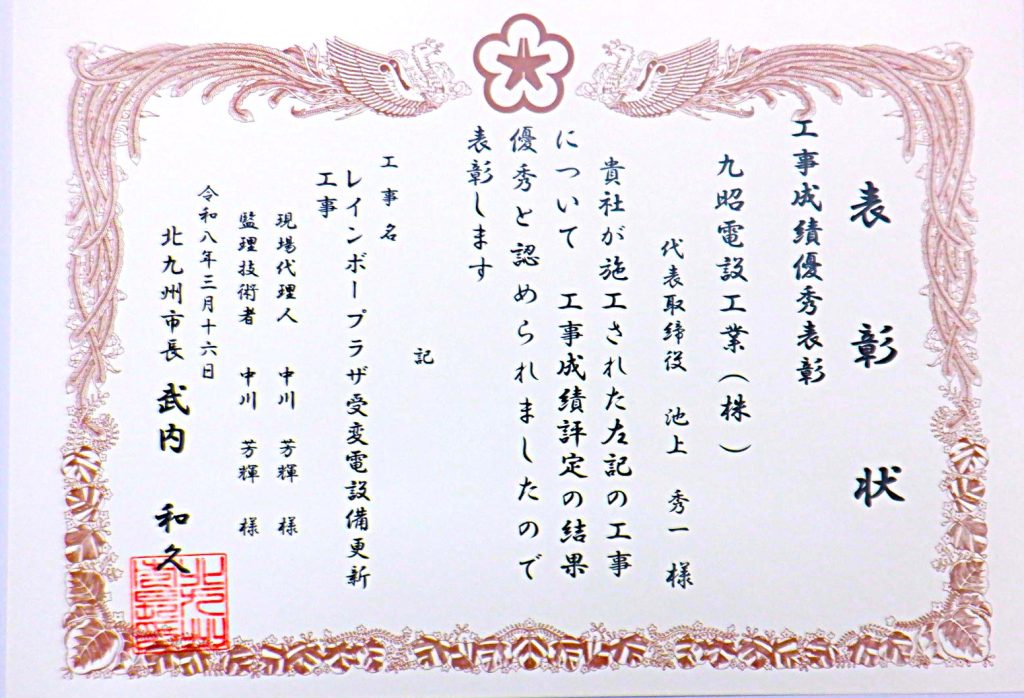 表彰状
工事成績優秀表彰
九昭電設工業(株)
代表取締役 池上 秀一 様
貴社が施工された左記の工事
について 工事成績評定の結果
優秀と認められましたので
表彰します
記
工事名
レインボープラザ受変電設備更新
工事
現場代理人 中川 芳輝 様
監理技術者 中川 芳輝 様
令和八年三月十六日
北九州市長 武内 和久